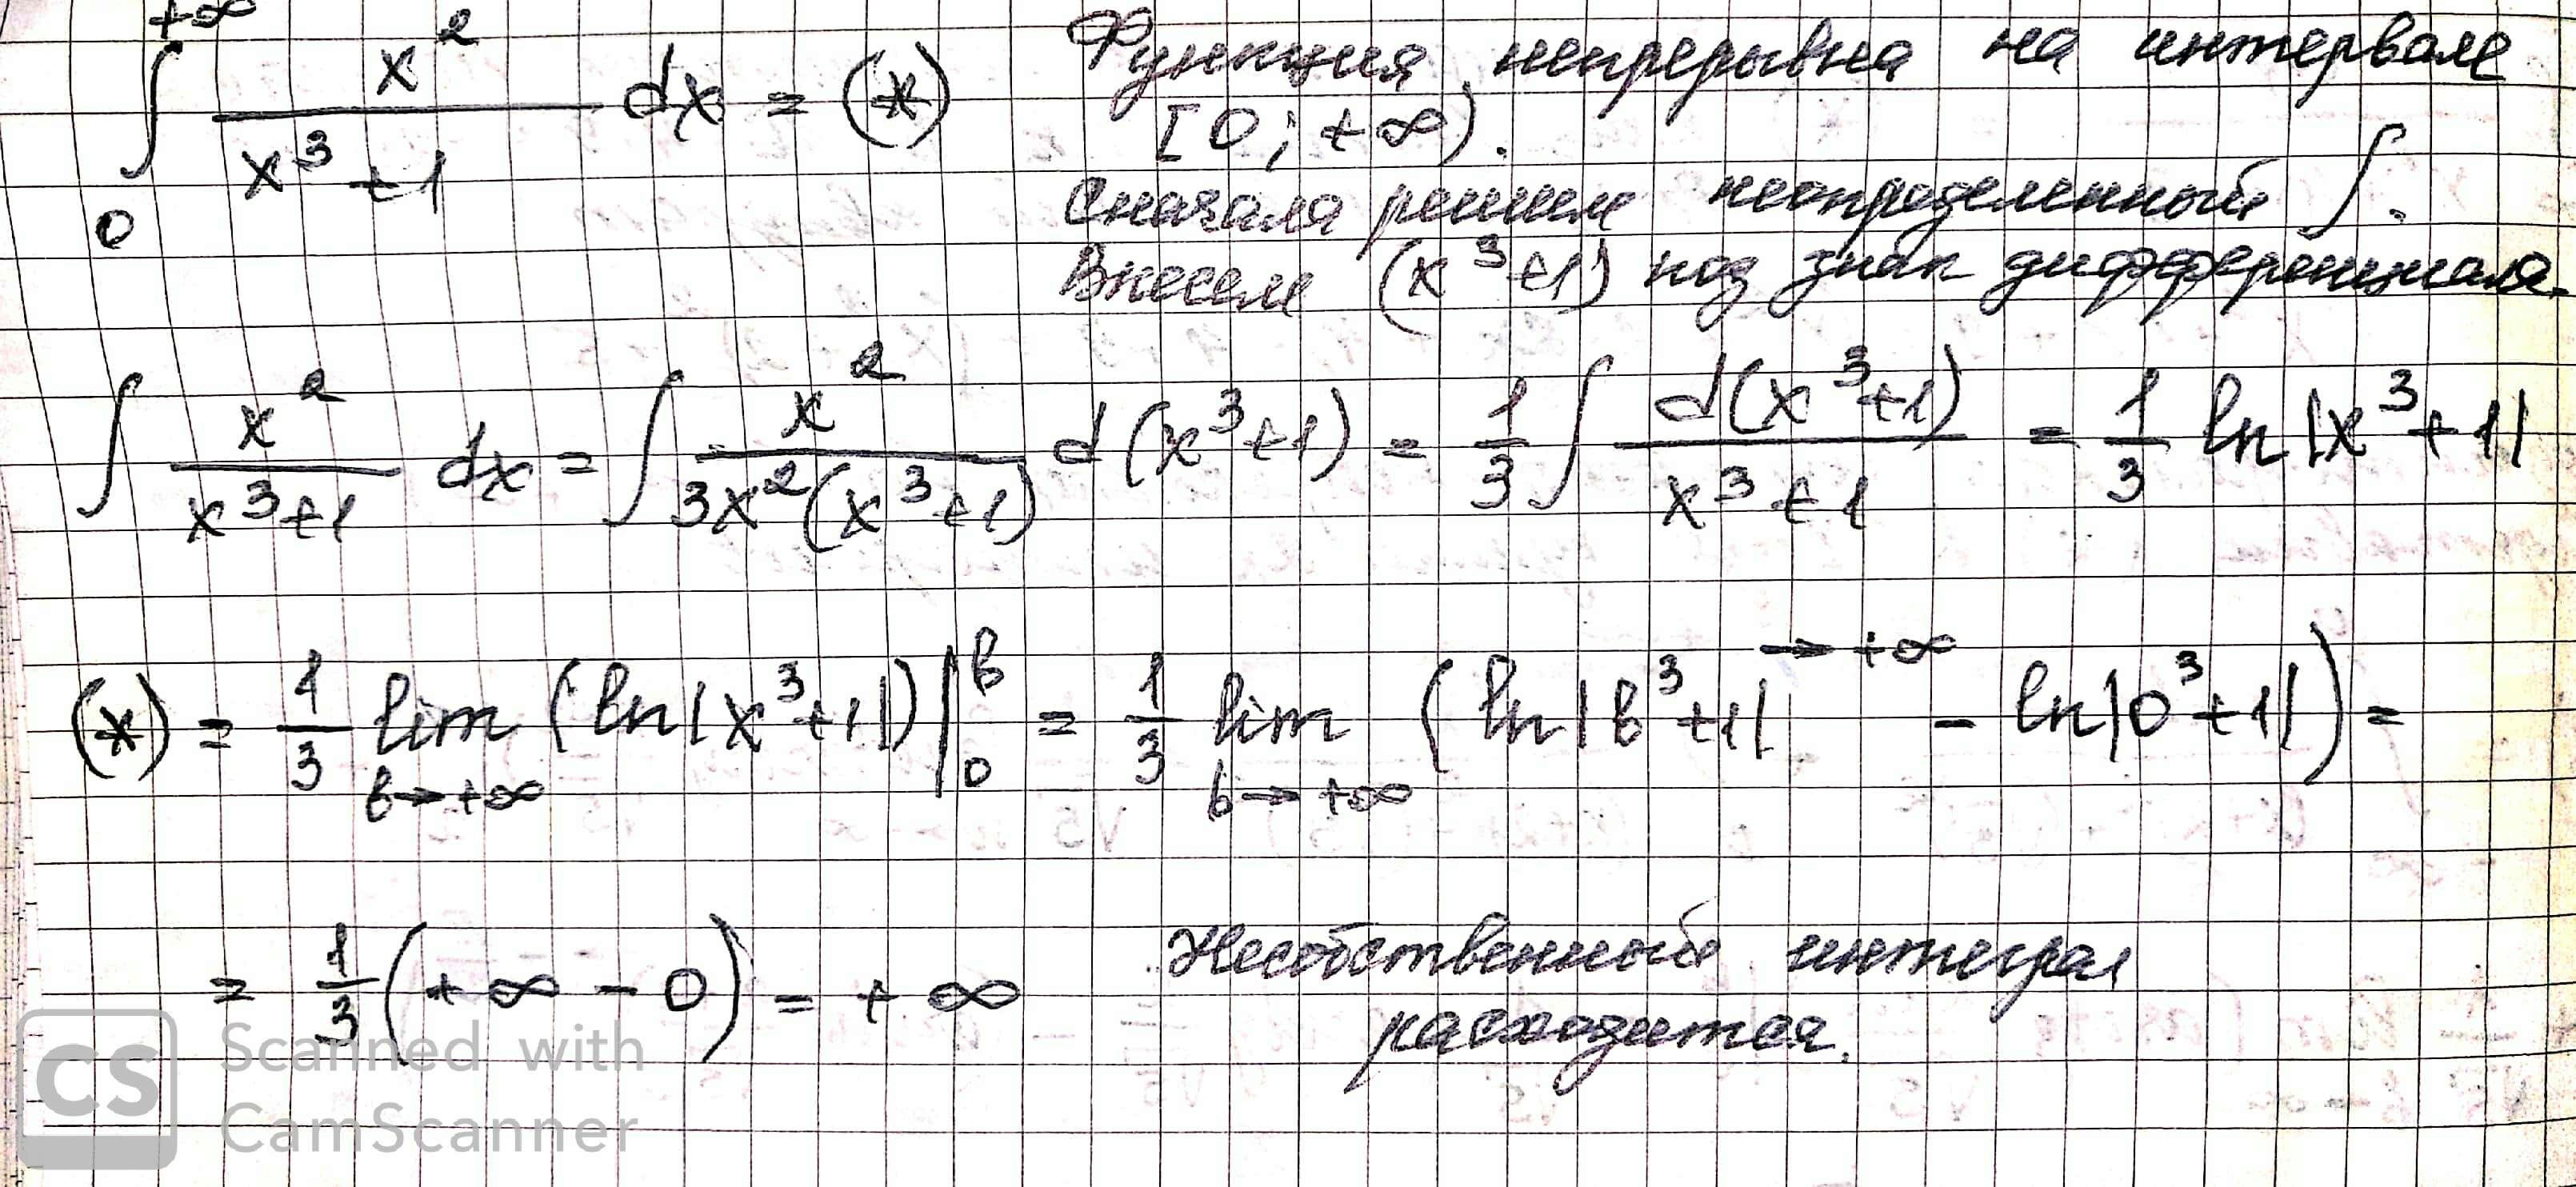 ∫₀^{+∞} x²/(x³+1) dx = (*) Функция непрерывна на интервале
[0; +∞).
Сначала решим неопределенный ∫.
Внесем (x³+1) под знак дифференциала.
∫ x²/(x³+1) dx = ∫ x²/(3x²(x³+1)) d(x³+1) = 1/3 ∫ d(x³+1)/(x³+1) = 1/3 ln|x³+1|
(*) = 1/3 lim_{b→+∞} (ln|x³+1|)|₀^b = 1/3 lim_{b→+∞} (ln|b³+1|^{→+∞} - ln|0³+1|) =
= 1/3 (+∞ - 0) = +∞ Несобственный интеграл
расходится.
CS Scanned with
CamScanner